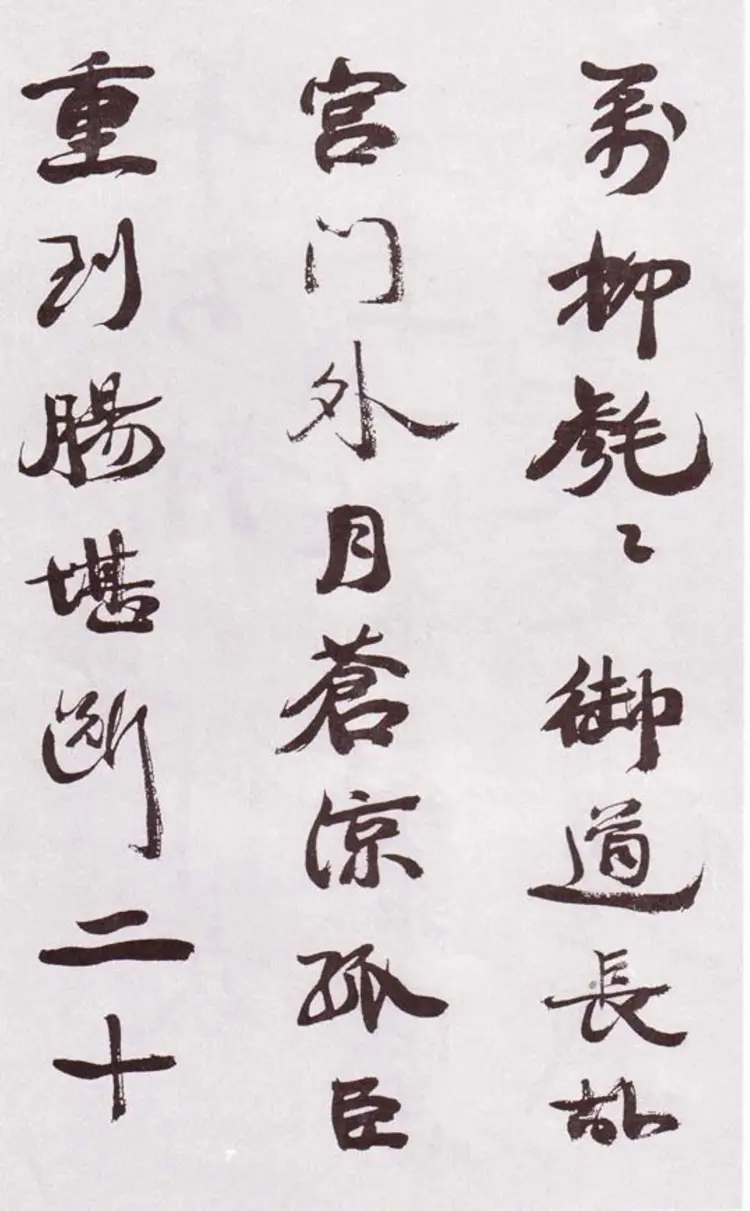 萬柳毿〻御道長故
宮门外月蒼涼孤臣
重到腸堪斷二十